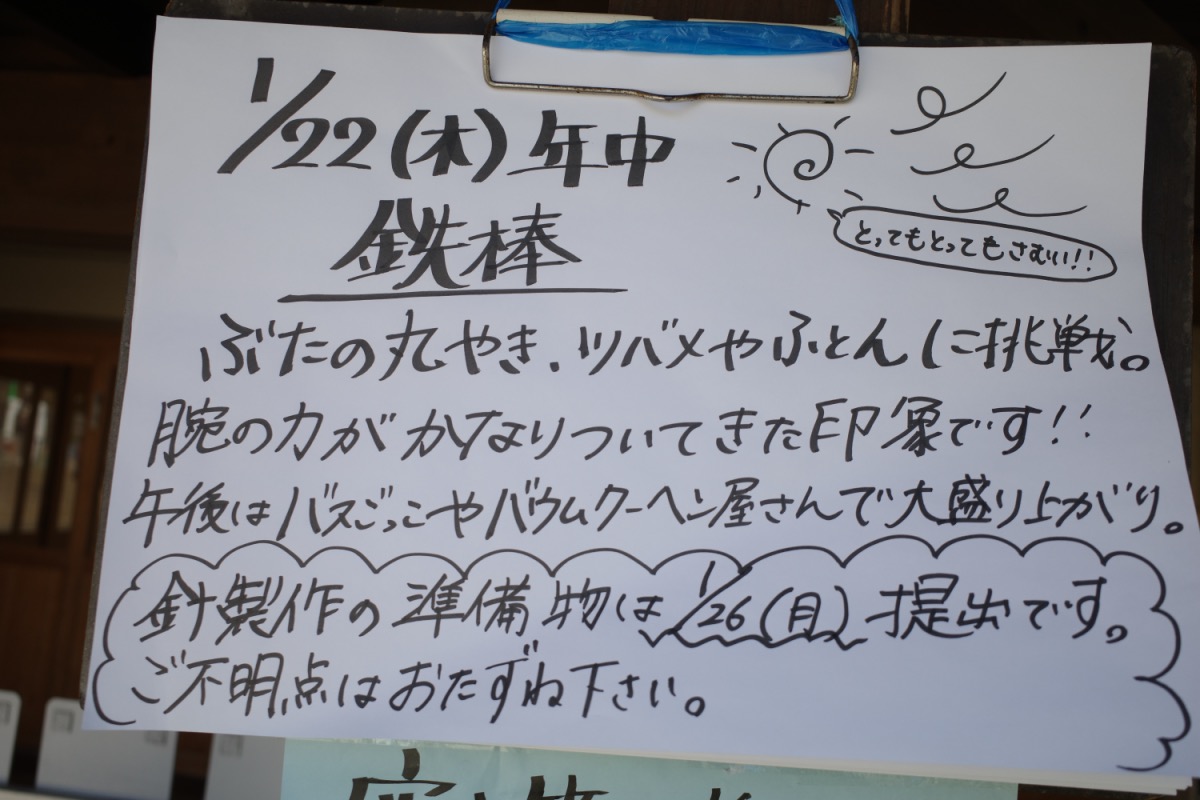 1/22(木)年中
鉄棒
とってもとってもさむい!!
ぶたの丸やき、ツバメやふとんに挑戦。
腕の力がかなりついてきた印象です!!
午後はバスごっこやバウムクーヘン屋さんで大盛り上がり。
針製作の準備物は1/26(月)提出です。
ご不明点はおたずね下さい。